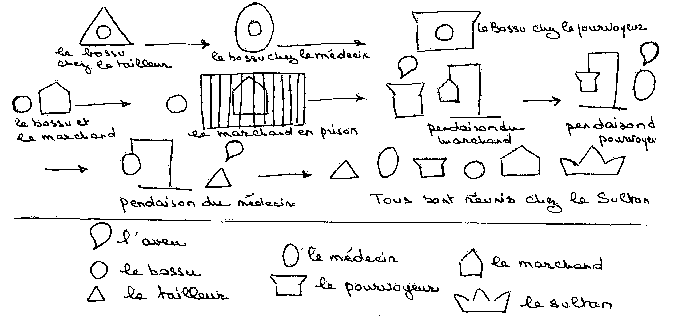 le bossu
chez le tailleur
le bossu chez le médecin
le Bossu chez le pourvoyeur
le bossu et
le marchand
le marchand en prison
pendaison du
marchand
pendaison d
pourvoyeur
pendaison du médecin
Tous sont réunis chez le Sultan
l'aveu
le bossu
le tailleur
le médecin
le pourvoyeur
le marchand
le sultan